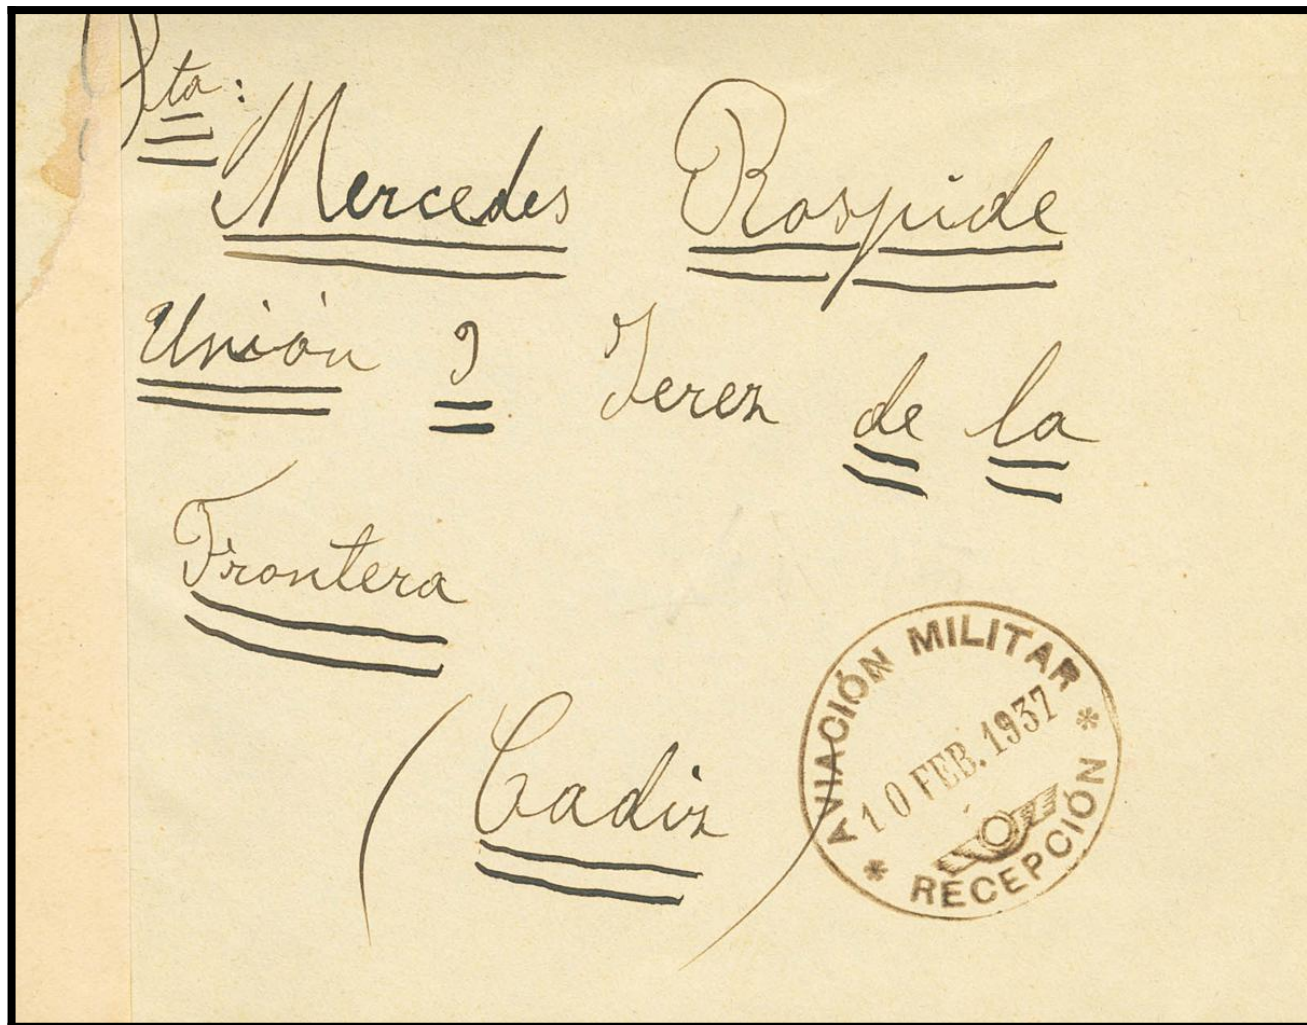 Sta:
Mercedes Rospide
Unión 9 Jerez de la
Frontera
(Cadiz)
AVIACIÓN MILITAR
10 FEB. 1937
* RECEPCIÓN *